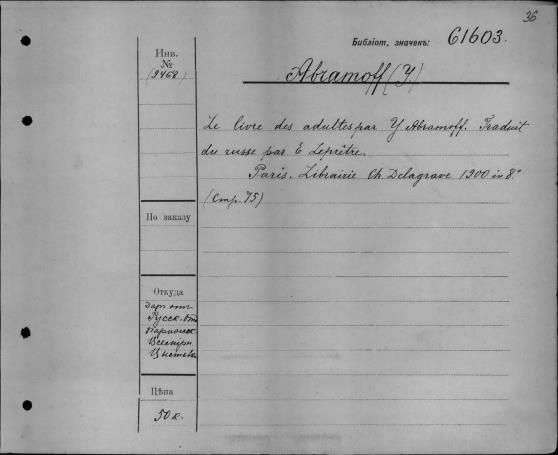 36
Библіот. значекъ: 61603.
Инв.
№
(9468)
Abramoff (Y)
Le livre des adultes par Y Abramoff. Traduit
du russe par E Leprêtre.
Paris. Librairie Ch. Delagrave 1900 in 8º
(стр. 75)
По заказу
Откуда
Даръ отъ
Русск. отд
Парижск.
Всемірн.
Цѣна
50 к.